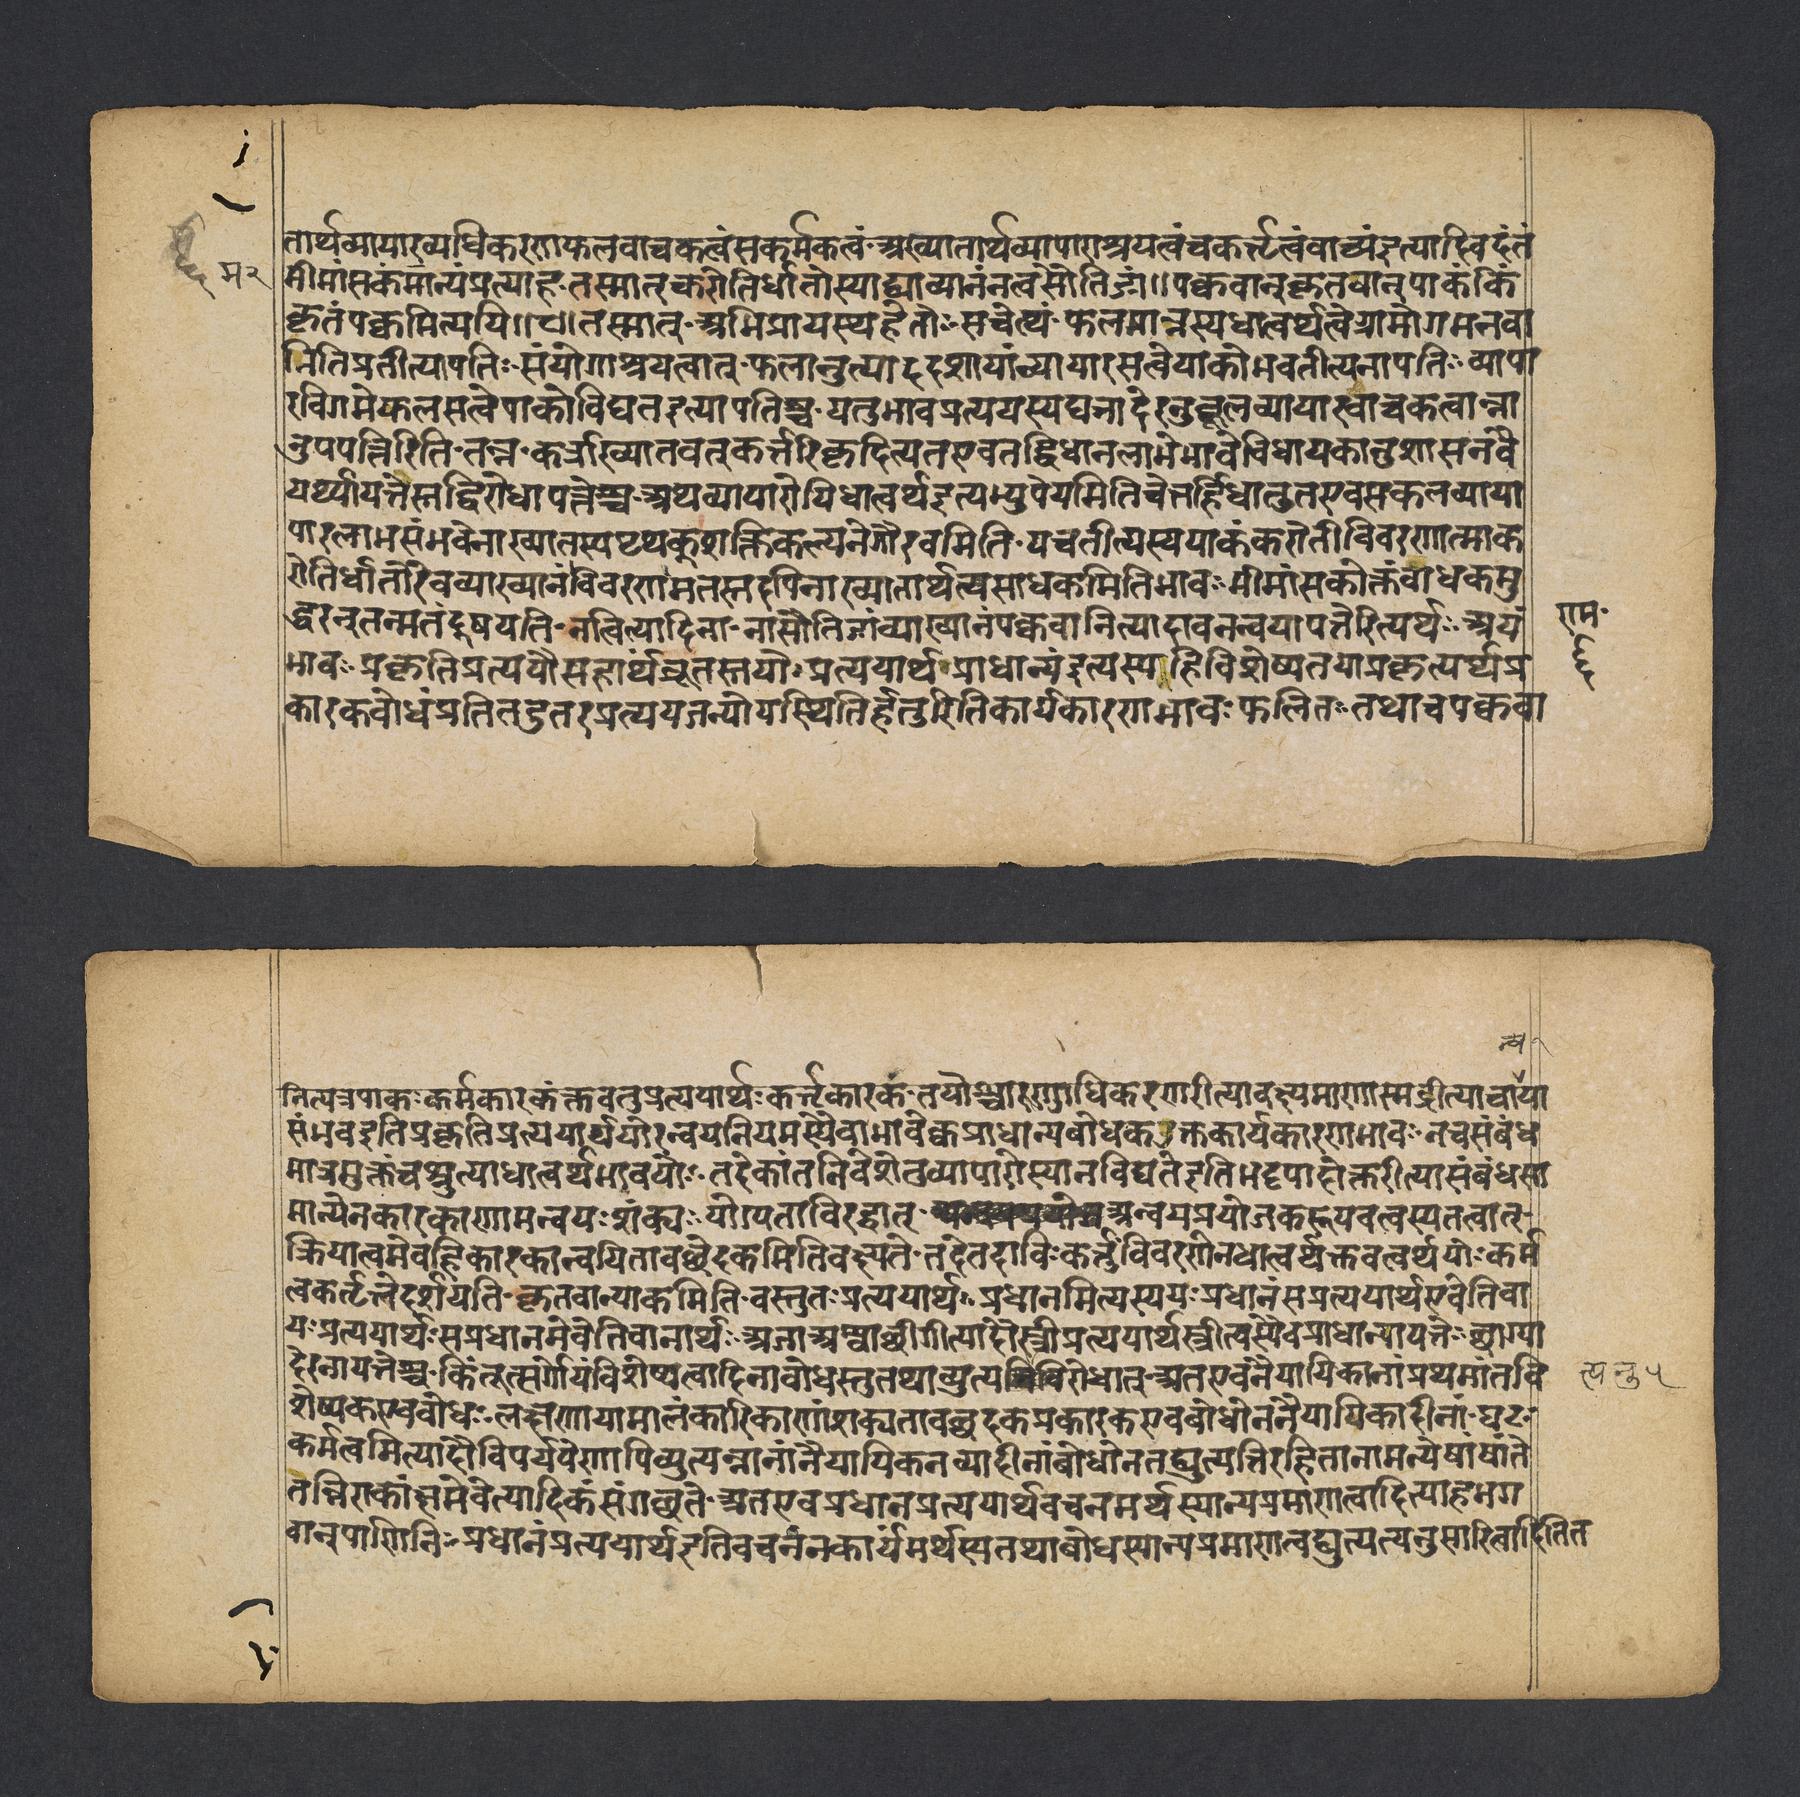 तार्थव्यापाराव्यधिकरणफलवाचकत्वंसकर्मकत्वं·अख्यातार्थव्यापाराश्रयत्वंचकर्तृत्वंवाच्यंइत्यादिवदंतं
मीमांसकंमान्यंप्रत्याह·तस्मात्करोतिर्धातोस्याद्याख्यानंनत्वसौतिङां॥पक्कवान्कृतवान्पाकंकिं
कृतंपक्कमित्यपि॥८॥तस्मात्·अभिप्रायस्थहेतोः·सचेत्थं·फलमात्रस्यधात्वर्थत्वेग्रामोगमनवा
नितिप्रतीत्यापतिः·संयोगाश्रयत्वात्·फलानुत्पाददशायांव्यापारसत्वेपाकोभवतीत्यनापतिः·व्यापा
रविगमेफलसत्वेपाकोविद्यतइत्यापतिश्च·यतुभावप्रत्ययस्यघञादेरनुकूलव्यापारवाचकत्वान्ना
नुपपत्तिरिति·तन्न·कर्त्राख्यातवत्कर्त्तरिकृदित्यतएवतद्विधानलाभेभावेविधायकानुशासनवै
यर्थ्यापत्तेस्तद्विरोधापत्तेश्च·अथव्यापारोपिधात्वर्थइत्यभ्युपेयमितिचेत्तर्हिधातुतएवसकलव्यापा
पारलाभसंभवेनाख्यातस्यपृथक्शक्तिकल्पनेगौरवमिति·पचतीत्यस्यपाकंकरोतीविवरणात्माक
रोतिर्धातोरिवव्याख्यानंविवरणमतस्तदपिनाख्यातार्थत्वसाधकमितिभावः·मीमांसकोक्तंबाधकमु
द्धरन्तन्मतंदूषयति·नत्वित्यादिना·नासौतिङांव्याख्यानंपक्कवानित्यादावनन्वयापत्तेरित्यर्थः·अयं
भावः·प्रकृतिप्रत्ययौसहार्थंब्रूतस्तयोःप्रत्ययार्थःप्राधान्यंइत्यस्याहिविशेष्यतयाप्रकृत्यर्थप्र
कारकबोधंप्रतितदुतरप्रत्ययजन्योपस्थितिर्हेतुरितिकार्यकारणभावः फलितः·तथाचपक्कवा
म२
राम·
नित्यत्रपाकःकर्मकारकंक्तवतुप्रत्ययार्थःकर्तृकारकं·तयोश्चारुणाधिकरणरीत्यावक्ष्यमाणास्मद्रीत्याचाया
संभवइतिप्रकृतिप्रत्ययार्थयोरन्वयनियमस्यैवाभावेक्कप्राधान्यबोधकउक्तकार्यकारणभावः·नचसंबंध
मात्रमुक्तंचश्रुत्याधात्वर्थभावयोः·तदेकांतनिवेशेतुव्यापारोस्यानविद्यतेइतिभट्टपादोक्तरीत्यासंबंधसा
मान्येनकारकाणामन्वयःशंक्यः·योग्यताविरहात्·अन्वयप्रयोजकरूपवत्वस्यतत्वात्-
क्रियात्वमेवहिकारकान्वयितावच्छेदकमितिवक्ष्यते·तदेतदाविःकर्तुंविवरणेनधात्वर्थक्तवत्वर्थयोःकर्म
त्वकर्तृत्वेदर्शयति·कृतवान्पाकमिति·वस्तुतःप्रत्ययार्थःप्रधानमित्यस्ययःप्रधानंसप्रत्ययार्थएवेतिवा
यःप्रत्ययार्थःसप्रधानमेवेतिवानार्थः·अजाअश्वाछागीत्यादौस्त्रीप्रत्ययार्थस्त्रीत्वस्यैवप्राधान्यापत्तेः·छाग्या
देरनापत्तेश्च·किंतूत्सर्गोयंविशेष्यत्वादिनाबोधस्तुतथाव्युत्पविरोधात्·अतएवनैयायिकानांप्रथमांतवि
शेष्यकएवबोधः·लक्षणायामालंकारिकाणांशक्यतावच्छेदकप्रकारकएवबोधोननैयायिकादीनां·घटः
कर्मत्वमित्यादौविपर्ययेणापिव्युत्पन्नानांनैयायिकनव्यादीनांबोधोनतद्युत्पत्तिरहितानामन्येषांषांते
तन्निराकांक्षमेवेत्यादिकंसंगच्छते·अतएवप्रधानप्रत्ययार्थवचनमर्थस्यान्यप्रमाणत्वादित्याहभग
वान्पाणिनिः·प्रधानंप्रत्ययार्थइतिवचनंनकार्यमर्थस्यतथाबोधस्यान्यप्रमाणत्वद्युत्पत्यनुसारित्वादितित
त्पनु५